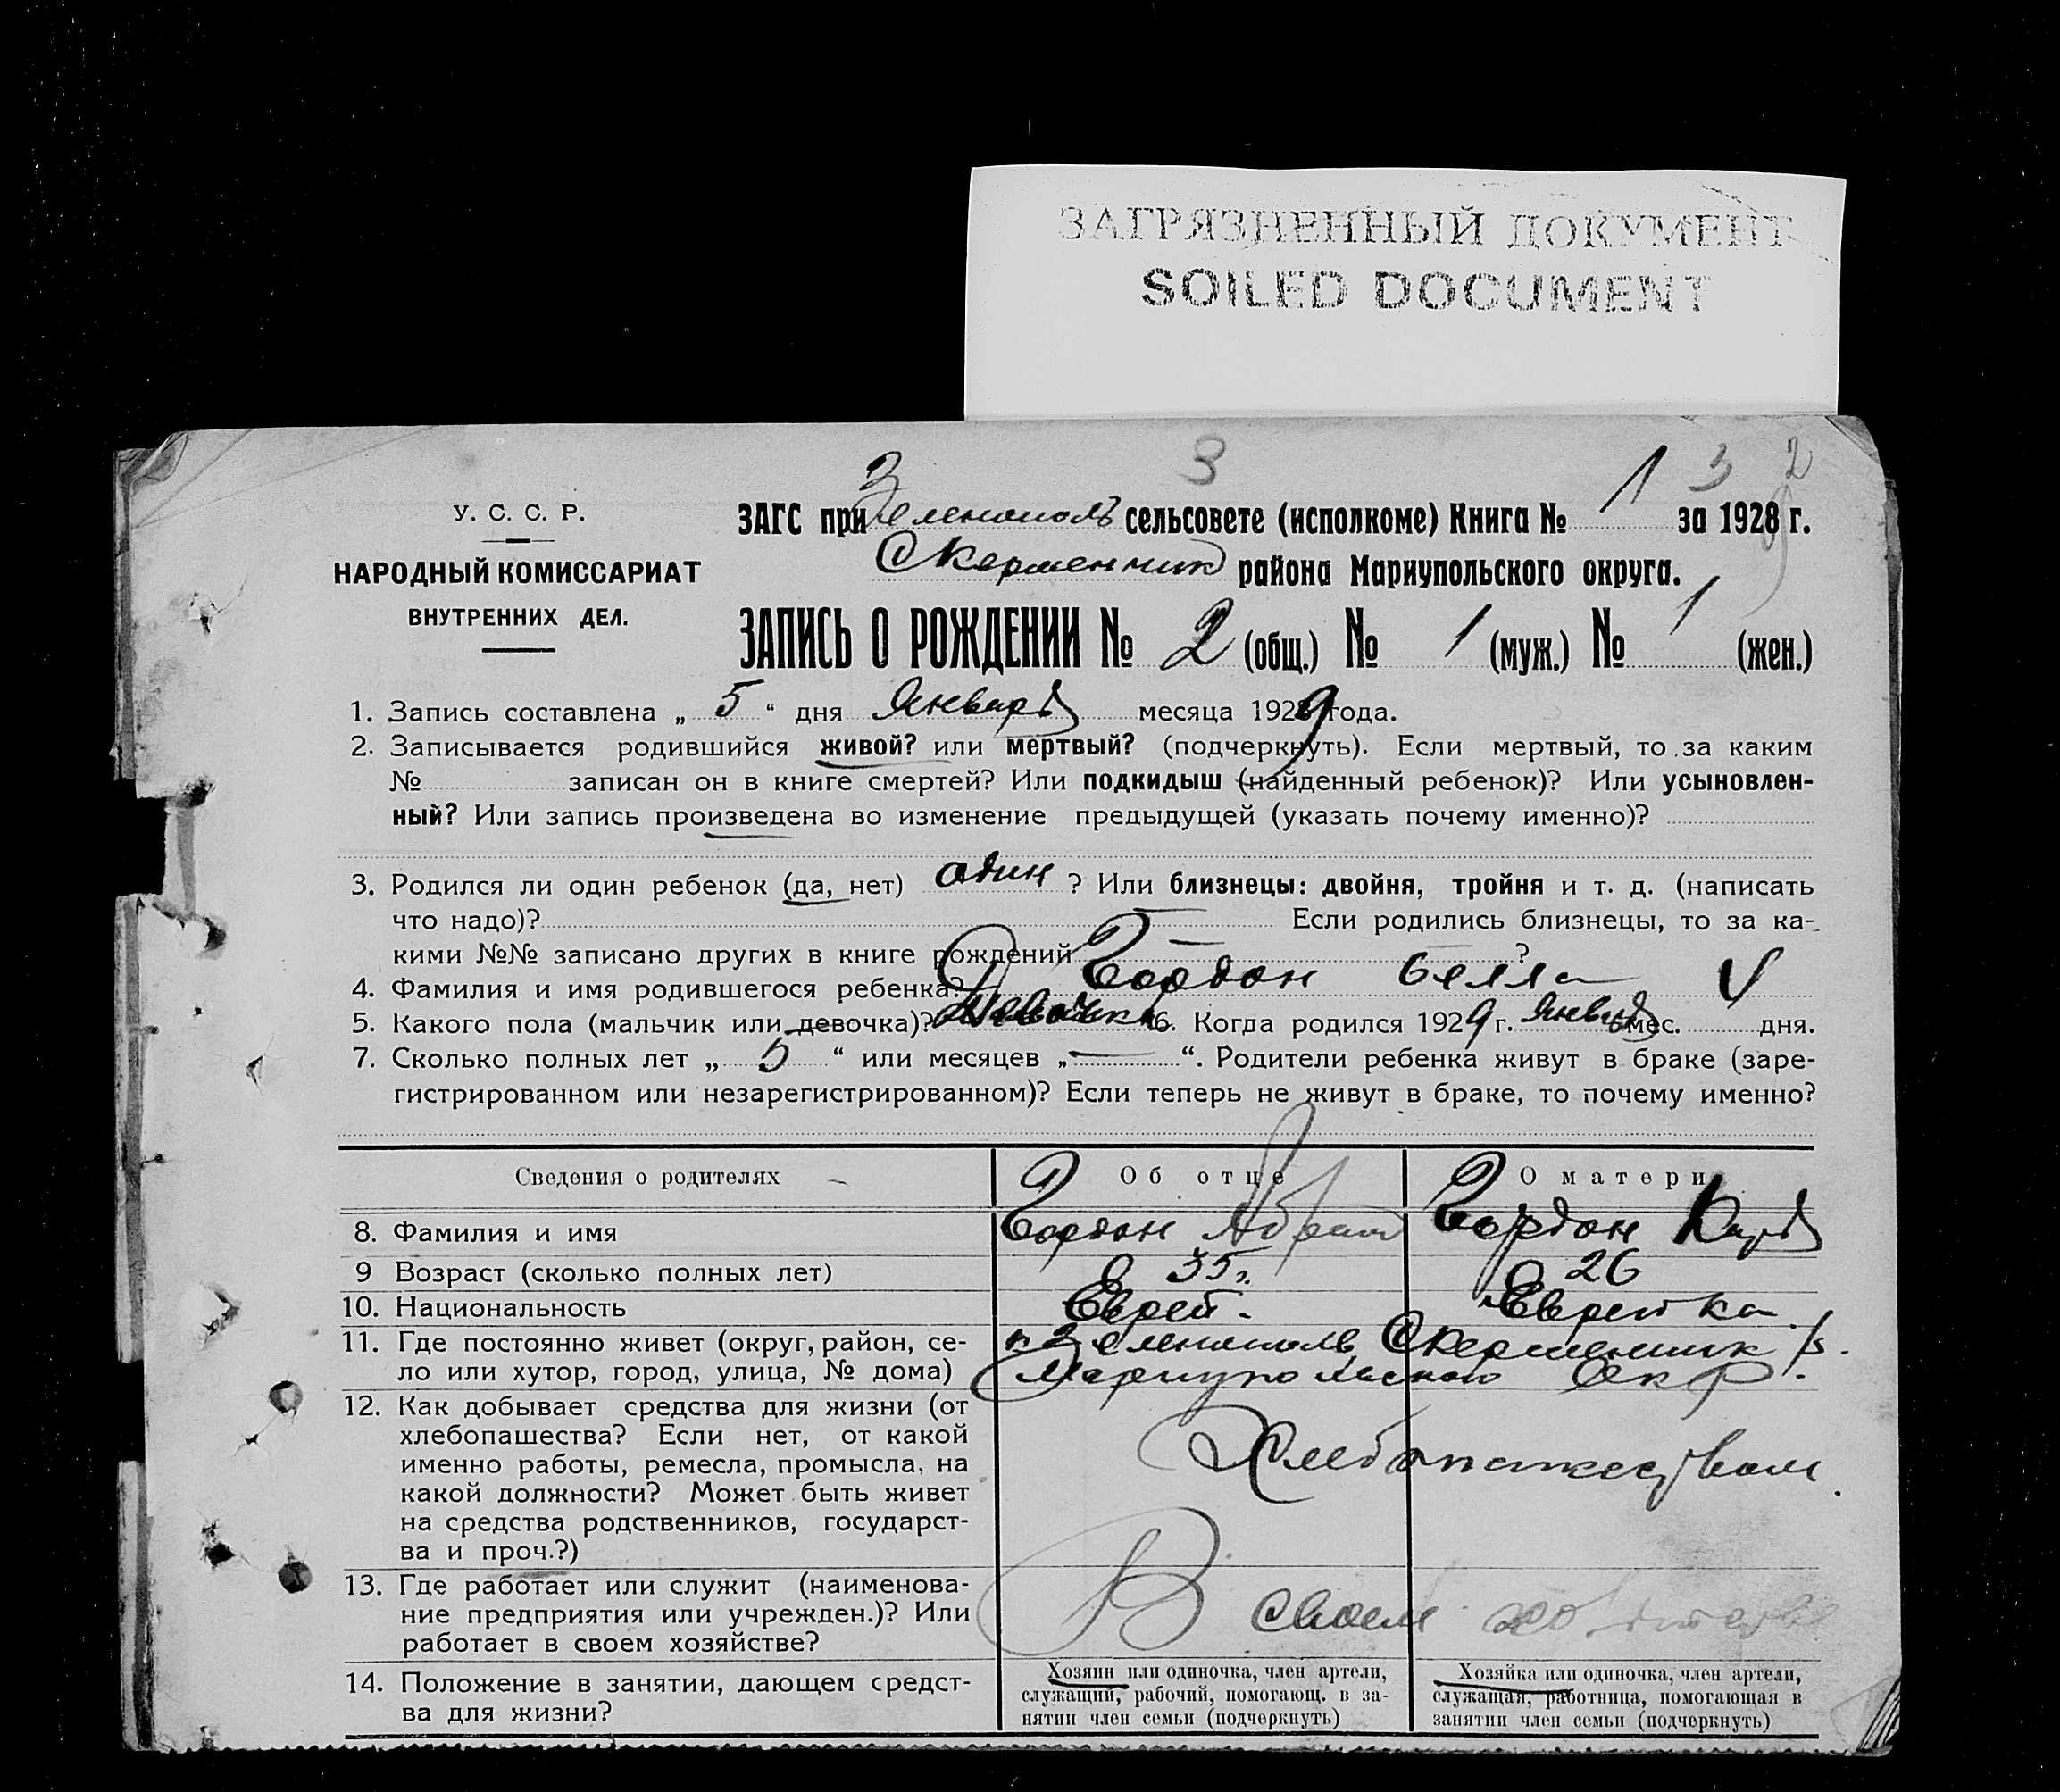 ЗАГРЯЗНЕННЫЙ ДОКУМЕНТ
SOILED DOCUMENT
3
3 2
У. С. С. Р.
НАРОДНЫЙ КОМИССАРИАТ
ВНУТРЕННИХ ДЕЛ.
ЗАГС при Зеленополь сельсовете (исполкоме) Книга № 1 за 1928 г.
района Мариупольского округа.
ЗАПИСЬ О РОЖДЕНИИ № 2 (общ.) № 1 (муж.) № 1 (жен.)
1. Запись составлена „ 5 “ дня Января месяца 1929 года.
2. Записывается родившийся живой? или мертвый? (подчеркнуть). Если мертвый, то за каким
№ записан он в книге смертей? Или подкидыш (найденный ребенок)? Или усыновлен-
ный? Или запись произведена во изменение предыдущей (указать почему именно)?
3. Родился ли один ребенок (да, нет) один ? Или близнецы: двойня, тройня и т. д. (написать
что надо)? Если родились близнецы, то за ка-
кими №№ записано других в книге рождений ?
4. Фамилия и имя родившегося ребенка? Гордон Белла
5. Какого пола (мальчик или девочка)? Девочка 6. Когда родился 1929 г. Января мес. дня.
7. Сколько полных лет „ 5 “ или месяцев „ — “. Родители ребенка живут в браке (заре-
гистрированном или незарегистрированном)? Если теперь не живут в браке, то почему именно?
Сведения о родителях Об отце О матери
8. Фамилия и имя Гордон Абрам Гордон
9 Возраст (сколько полных лет) 35 г. 26
10. Национальность Еврей. Еврейка
11. Где постоянно живет (округ, район, се-
ло или хутор, город, улица, № дома)
к Зеленополь
Мариупольского Окр.
12. Как добывает средства для жизни (от
хлебопашества? Если нет, от какой
именно работы, ремесла, промысла, на
какой должности? Может быть живет
на средства родственников, государст-
ва и проч.?)
Хлебопашеством.
13. Где работает или служит (наименова-
ние предприятия или учрежден.)? Или
работает в своем хозяйстве?
В своем хозяйстве
14. Положение в занятии, дающем средст-
ва для жизни?
Хозяин или одиночка, член артели,
служащий, рабочий, помогающ. в за-
нятии член семьи (подчеркнуть)
Хозяйка или одиночка, член артели,
служащая, работница, помогающая в
занятии член семьи (подчеркнуть)